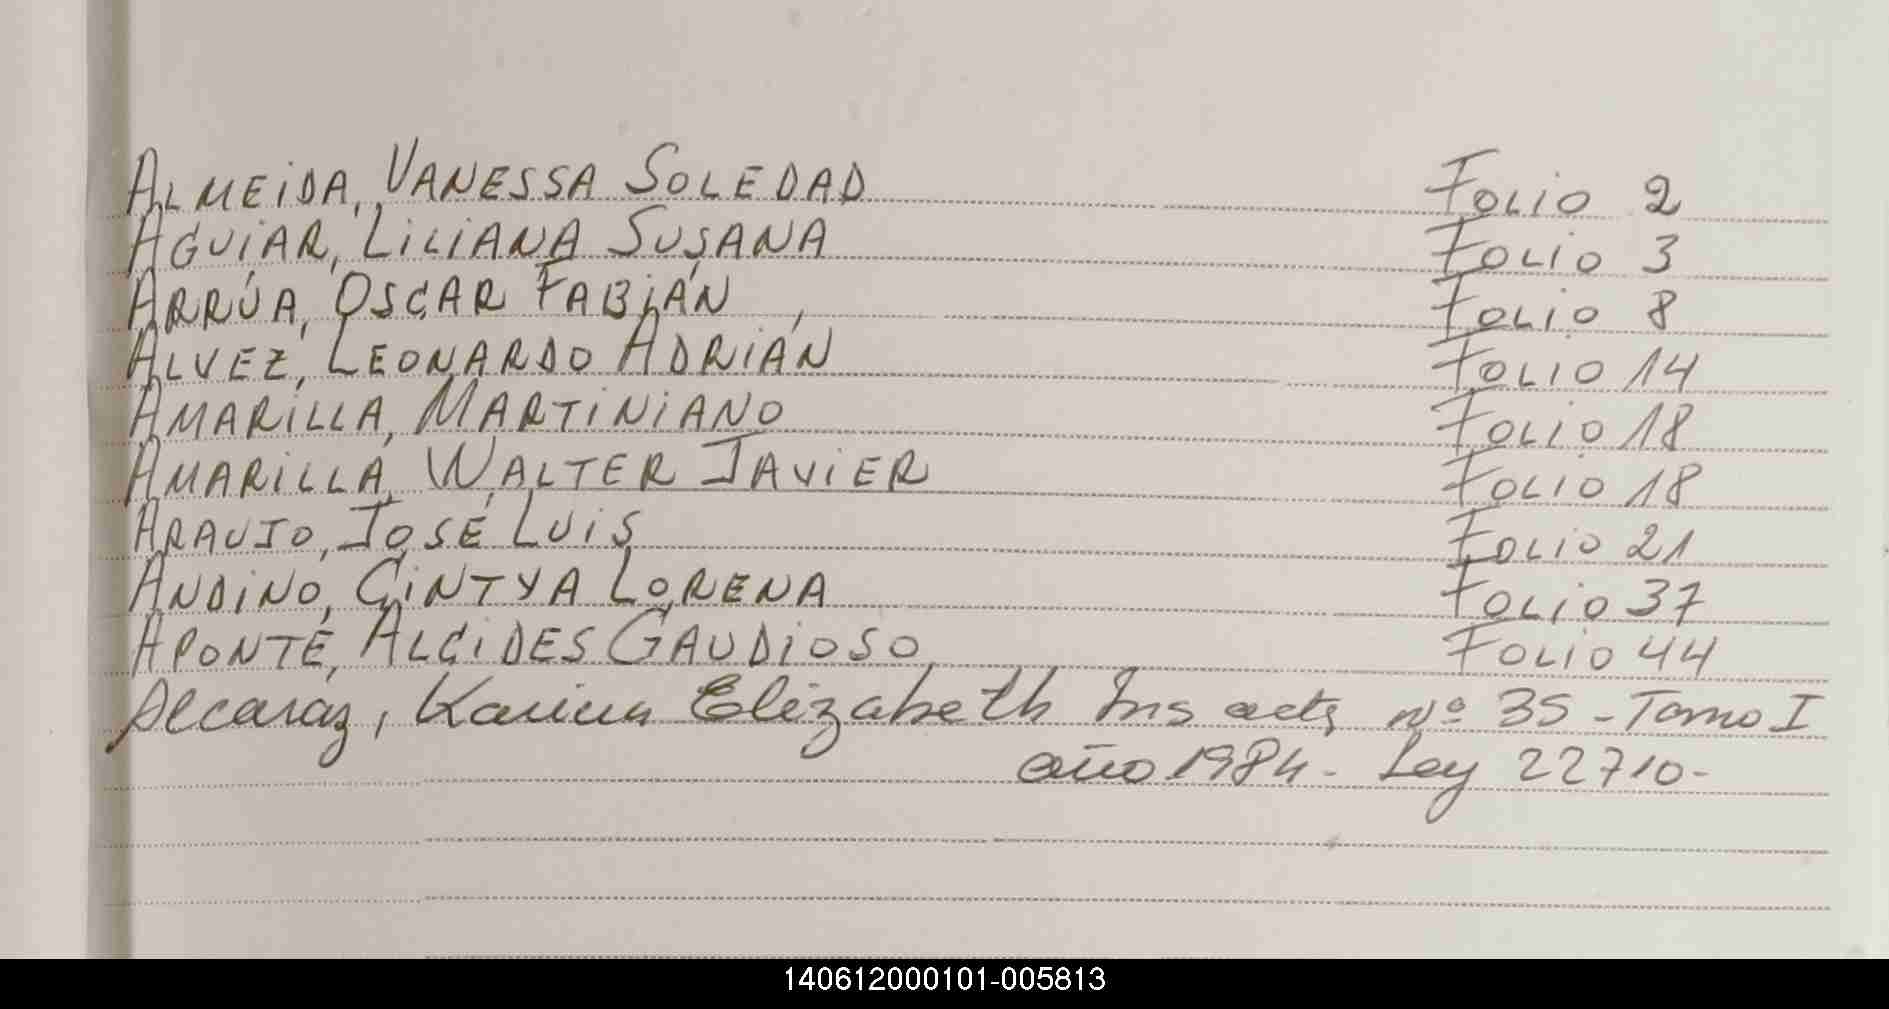 ALMEIDA, VANESSA SOLEDAD Folio 2
AGUIAR, LILIANA SUSANA Folio 3
ARRÚA, OSCAR FABIÁN Folio 8
ALVEZ, LEONARDO ADRIÁN Folio 14
AMARILLA, MARTINIANO Folio 18
AMARILLA, WALTER JAVIER Folio 18
ARAUJO, JOSÉ LUIS Folio 21
ANDINO, CINTYA LORENA Folio 37
APONTE, ALCIDES GAUDIOSO Folio 44
Alcaraz, Karina Elizabeth Ins acta nº 35 - Tomo I
año 1984 - Ley 22710 -
140612000101-005813